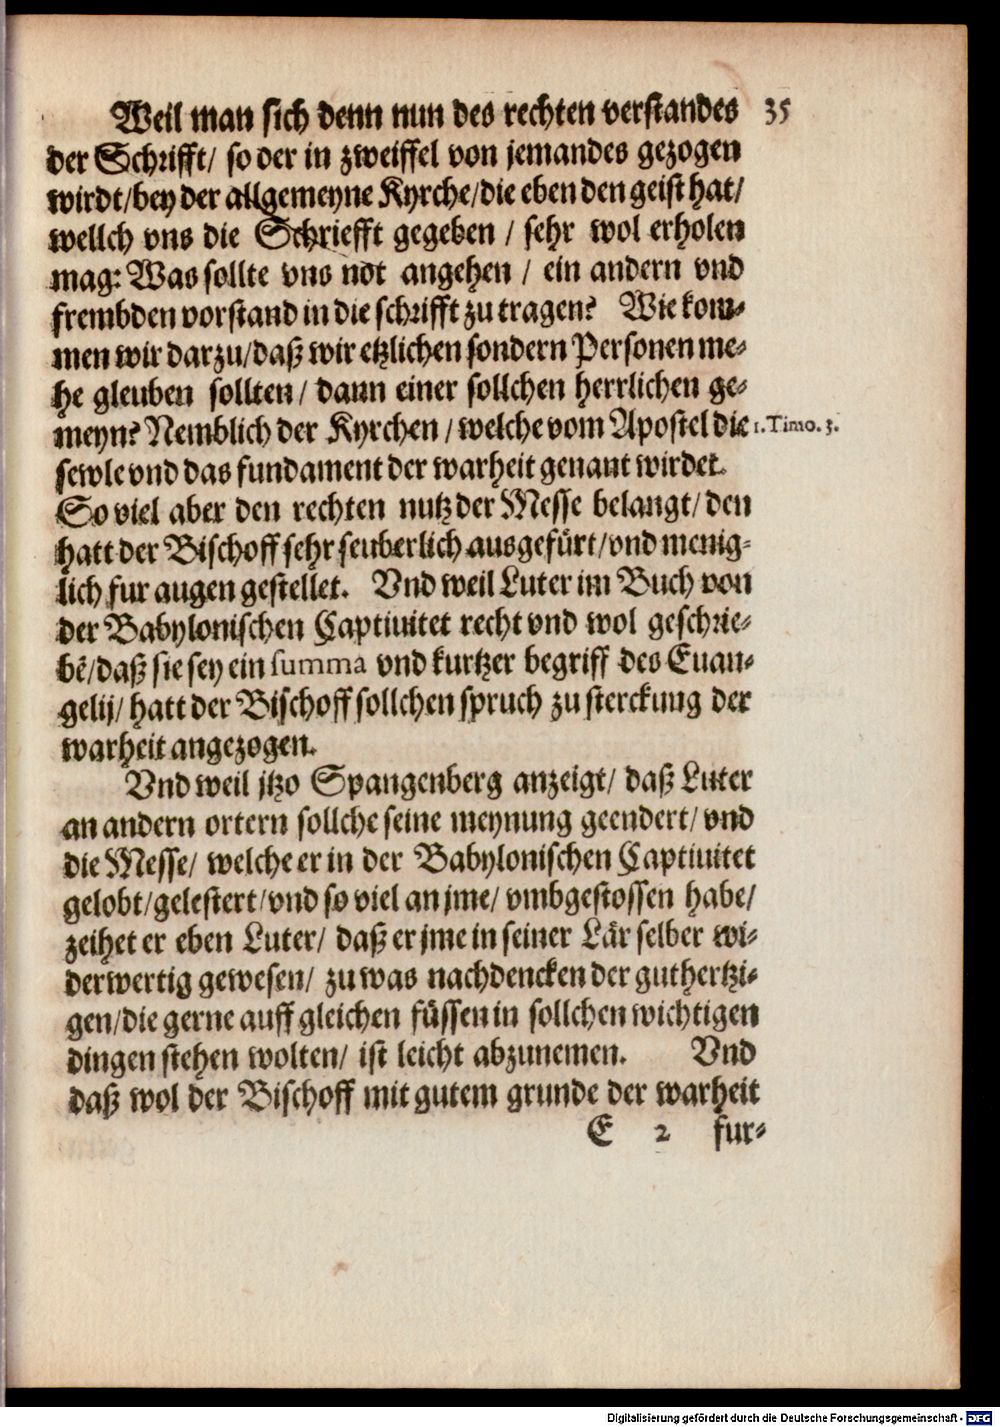 Weil man sich denn nun des rechten verstandes 35
der Schrifft/ so der in zweiffel von jemandes gezogen
wirdt/bey der allgemeyne Kyrche/die eben den geist hat/
wellch vns die Schriefft gegeben / sehr wol erholen
mag: Was sollte vns nôt angehen / ein andern vnd
frembden vorstand in die schrifft zu tragen? Wie kom-
men wir darzu/daß wir etzlichen sondern Personen me-
he gleuben sollten/ dann einer sollchen herrlichen ge-
meyn? Nemblich der Kyrchen / welche vom Apostel die 1. Timo. 3.
sewle vnd das fundament der warheit genant wirdet.
So viel aber den rechten nutz der Messe belangt/ den
hatt der Bischoff sehr seuberlich ausgefürt/vnd menig-
lich fur augen gestellet. Vnd weil Luter im Buch von
der Babylonischen Captiuitet recht vnd wol geschrie-
bē/daß sie sey ein summa vnd kurtzer begriff des Euan-
gelij/ hatt der Bischoff sollchen spruch zu sterckung der
warheit angezogen.
Vnd weil jtzo Spangenberg anzeigt/ daß Luter
an andern ortern sollche seine meynung geendert/ vnd
die Messe/ welche er in der Babylonischen Captiuitet
gelobt/gelestert/vnd so viel an jme/ vmbgestossen habe/
zeihet er eben Luter/ daß er jme in seiner Lär selber wi-
derwertig gewesen/ zu was nachdencken der guthertzi-
gen/die gerne auff gleichen füssen in sollchen wichtigen
dingen stehen wolten/ ist leicht abzunemen. Vnd
daß wol der Bischoff mit gutem grunde der warheit
E 2 fur-
Digitalisierung gefördert durch die Deutsche Forschungsgemeinschaft - DFG